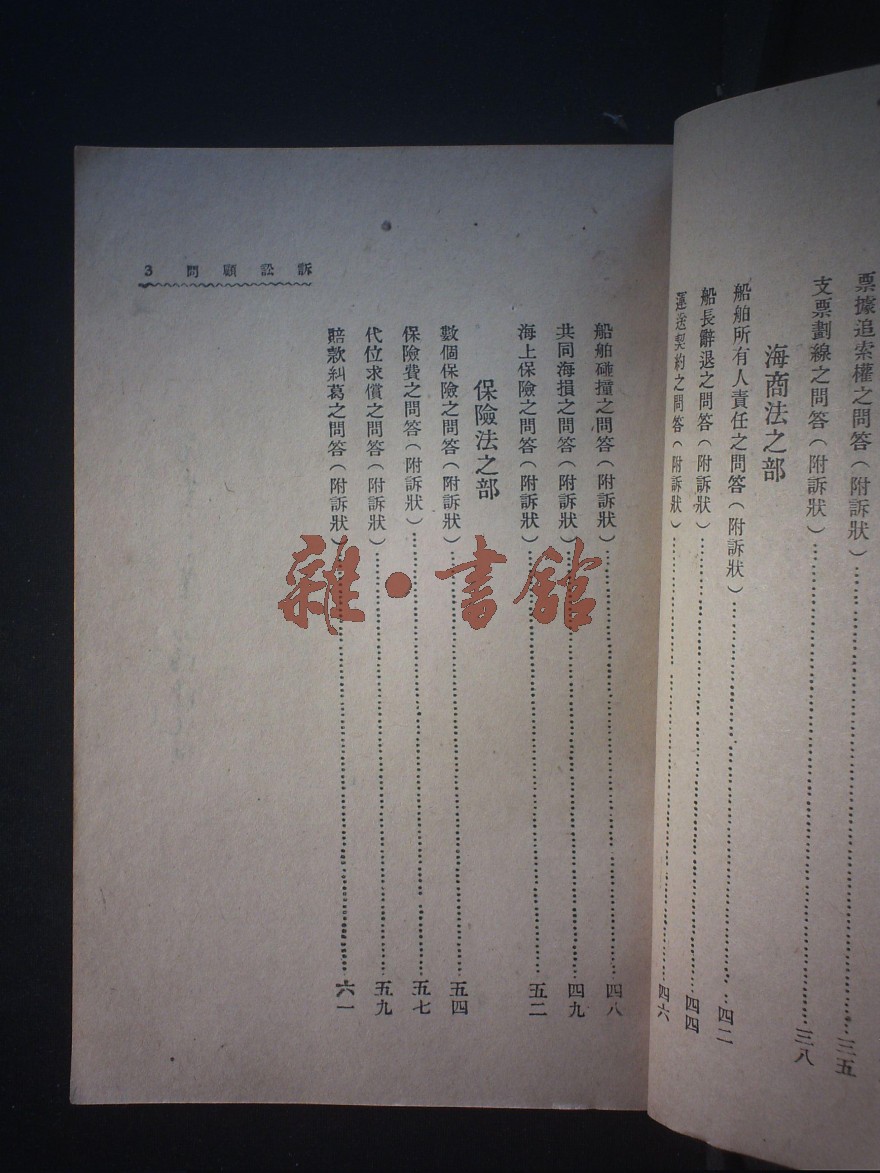 票據追索權之問答(附訴狀)……三五
支票劃線之問答(附訴狀)……三八
海商法之部
船舶所有人責任之問答(附訴狀)……四二
船長辭退之問答(附訴狀)……四四
運送契約之問答(附訴狀)……四六
船舶碰撞之問答(附訴狀)……四八
共同海損之問答(附訴狀)……四九
海上保險之問答(附訴狀)……五二
保險法之部
數個保險之問答(附訴狀)……五四
保險費之問答(附訴狀)……五七
代位求償之問答(附訴狀)……五九
賠款糾葛之問答(附訴狀)……六一
訴訟顧問 3
雜·書館